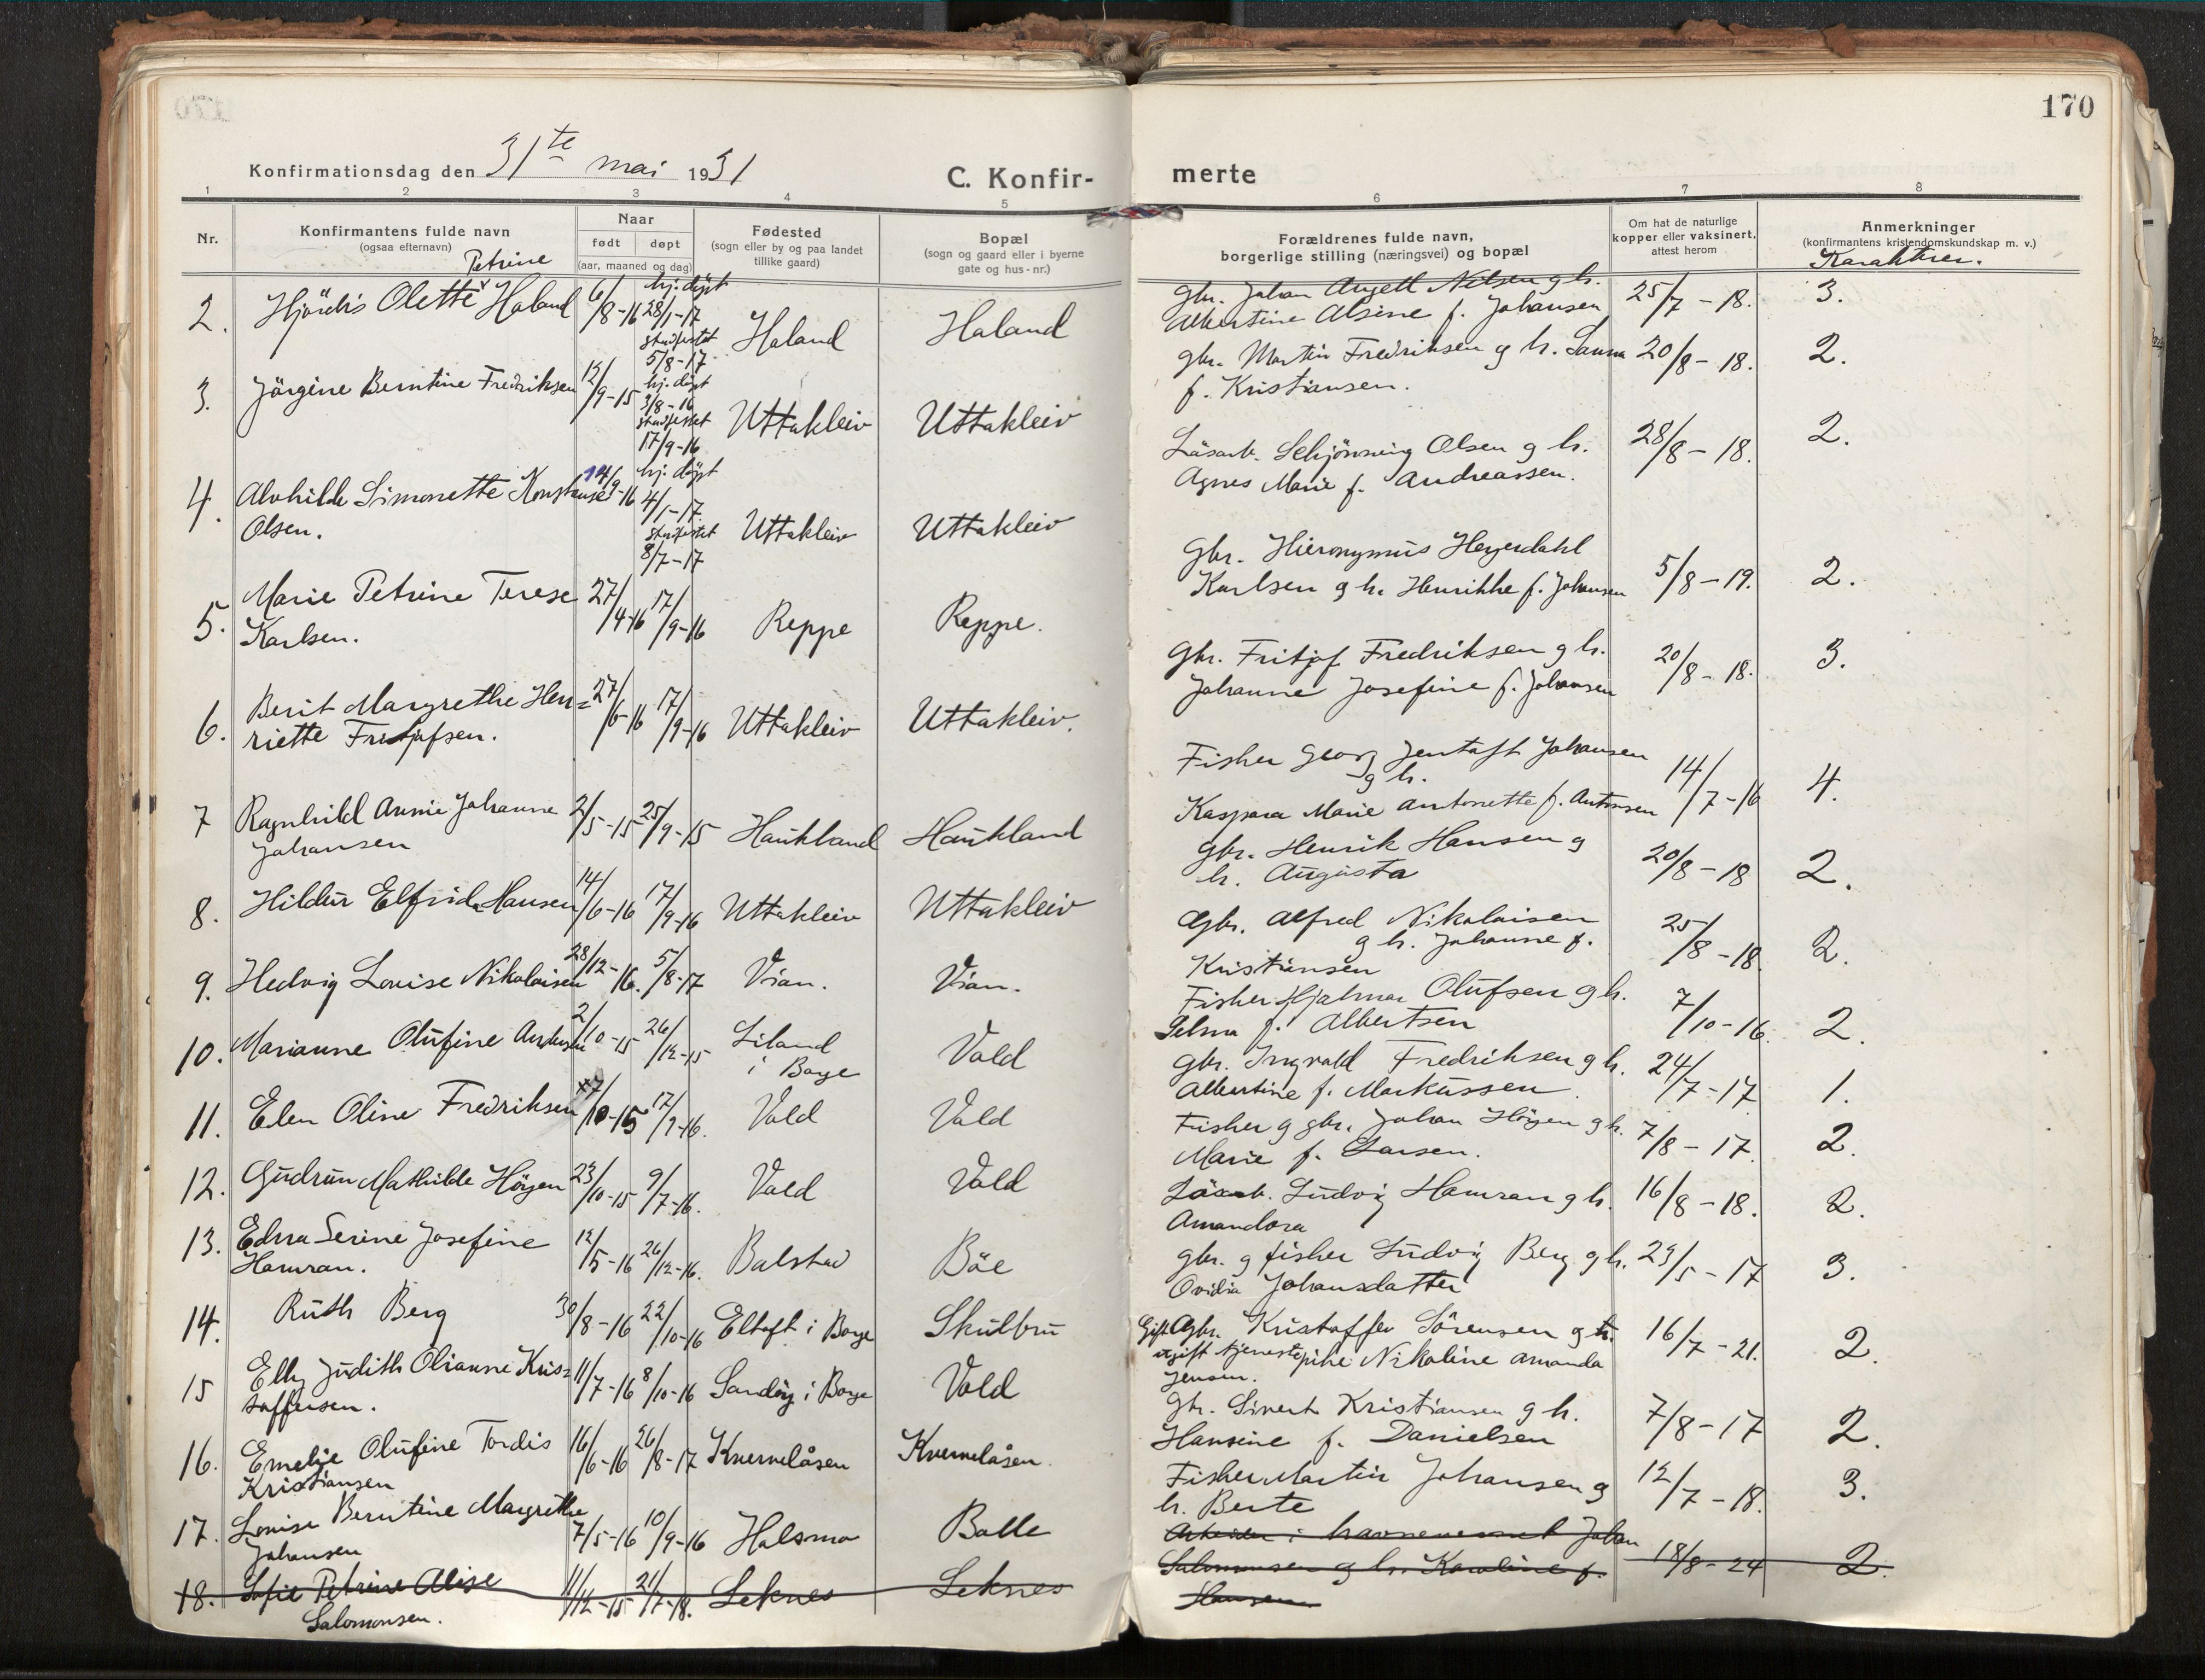 170
Konfirmationsdag den 31te mai 1931
C. Konfir-
merte
1 2 3 4 5 6 7 8
Nr.
Konfirmantens fulde navn
(ogsaa efternavn)
Naar
født døpt
(aar, maaned og dag)
Fødested
(sogn eller by og paa landet
tillike gaard)
Bopæl
(sogn og gaard eller i byerne
gate og hus-nr.)
Forældrenes fulde navn,
borgerlige stilling (næringsvei) og bopæl
Om hat de naturlige
kopper eller vaksinert,
attest herom
Anmerkninger
(konfirmantens kristendomskundskap m. v.)
Karakterer.
Petrine
2. Hjördis Olette Haland 6/8-16 hj. döpt 28/1-17 stadfestet 5/8-17 Haland Haland
Gbr. Johan Angell Nilsen g h.
Albertine Alsine f. Johansen 25/7-18. 3.
3. Jörgine Berntine Fredriksen 12/9-15 hj. döpt 3/8-16 stadfestet 17/9-16 Uttakleiv Uttakleiv
gbr. Martin Fredriksen g h. Laura 20/8-18. 2.
f. Kristiansen.
4. Alvhilde Simonette Konstanse 14/9-16 hj. döpt 4/1-17. stadfestet 8/7-17 Uttakleiv Uttakleiv
Olsen.
Läsarb. Schjönning Olsen g h. 28/8-18. 2.
Agnes Marie f. Andreassen.
5. Marie Petrine Terese 27/4-16 17/9-16 Reppe Reppe.
Karlsen.
Gbr. Hieronymus Heyerdahl
Karlsen g h. Henrikke f. Johansen 5/8-19. 2.
6. Berit Margrethe Hen= 27/6-16 17/9-16 Uttakleiv Uttakleiv.
riette Fritjofsen.
Gbr. Fritjof Fredriksen g h. 20/8-18. 3.
Johanne Josefine f. Johansen
7 Ragnhild Annie Johanne 2/5-15 25/9-15 Haukland Haukland
Johansen
Fisker Georg Jentoft Johansen
g h. 14/7-16 4.
Kaspara Marie Antonette f. Antonsen
8. Hildur Elfrida Hansen 14/6-16 17/9-16 Uttakleiv Uttakleiv
Gbr. Henrik Hansen g 20/8-18 2.
h. Augusta
9. Hedvig Lovise Nikolaisen 28/12-16. 5/8-17 Vian. Vian.
Gbr. Alfred Nikolaisen 25/8-18. 2.
g h. Johanne f.
Kristiansen
10. Marianne Olufine 2/10-15 26/12-15 Liland i Borge Vold
Fisker Hjalmar Olufsen g h. 7/10-16. 2.
Selma f. Albertsen
11. Elen Oline Fredriksen 10-15 17/9-16. Vold Vold
gbr. Ingvald Fredriksen g h. 24/7-17 1.
Albertine f. Markussen.
12. Gudrun Mathilde Höyen 23/10-15 9/7-16. Vold Vold
Fisker g gbr. Johan Höyen g h. 7/8-17. 2.
Marie f. Larsen.
13. Edna Serine Josefine 12/5-16 26/12-16. Balstad Böe
Hamran.
Läsarb. Ludvig Hamran g h. 16/8-18. 2.
Amandora
14. Ruth Berg 30/8-16 22/10-16 Eltoft i Borge Skulbru
gbr. g fisker Ludvig Berg g h. 29/5-17 3.
Ovidia Johansdatter
15 Elly Judith Olianne Kris= 11/7-16 8/10-16 Sandöy i Borge Vold
toffersen.
Gift Gbr. Kristoffer Sörensen g 16/7-21. 2.
ugift tjenestepike Nikoline Amanda
Jensen.
16. Emelie Olufine Tordis 16/6-16 26/8-17 Kvernelåsen Kvernelåsen.
Kristiansen
Gbr. Sivert Kristiansen g h. 7/8-17 2.
Hansine f. Danielsen
17. Lovise Berntine Margrethe 7/5-16 10/9-16 Holsmo Bolle
Johansen
Fisker Martin Johansen g 12/7-18. 3.
h. Berte
18. Sofie Petrine Alise 11/12-15 21/7-18. Leknes Leknes
Salomonsen.
Arbeider i havnevesenet Johan
Salomonsen g h. Karoline f. 18/8-24 2.
Hansen